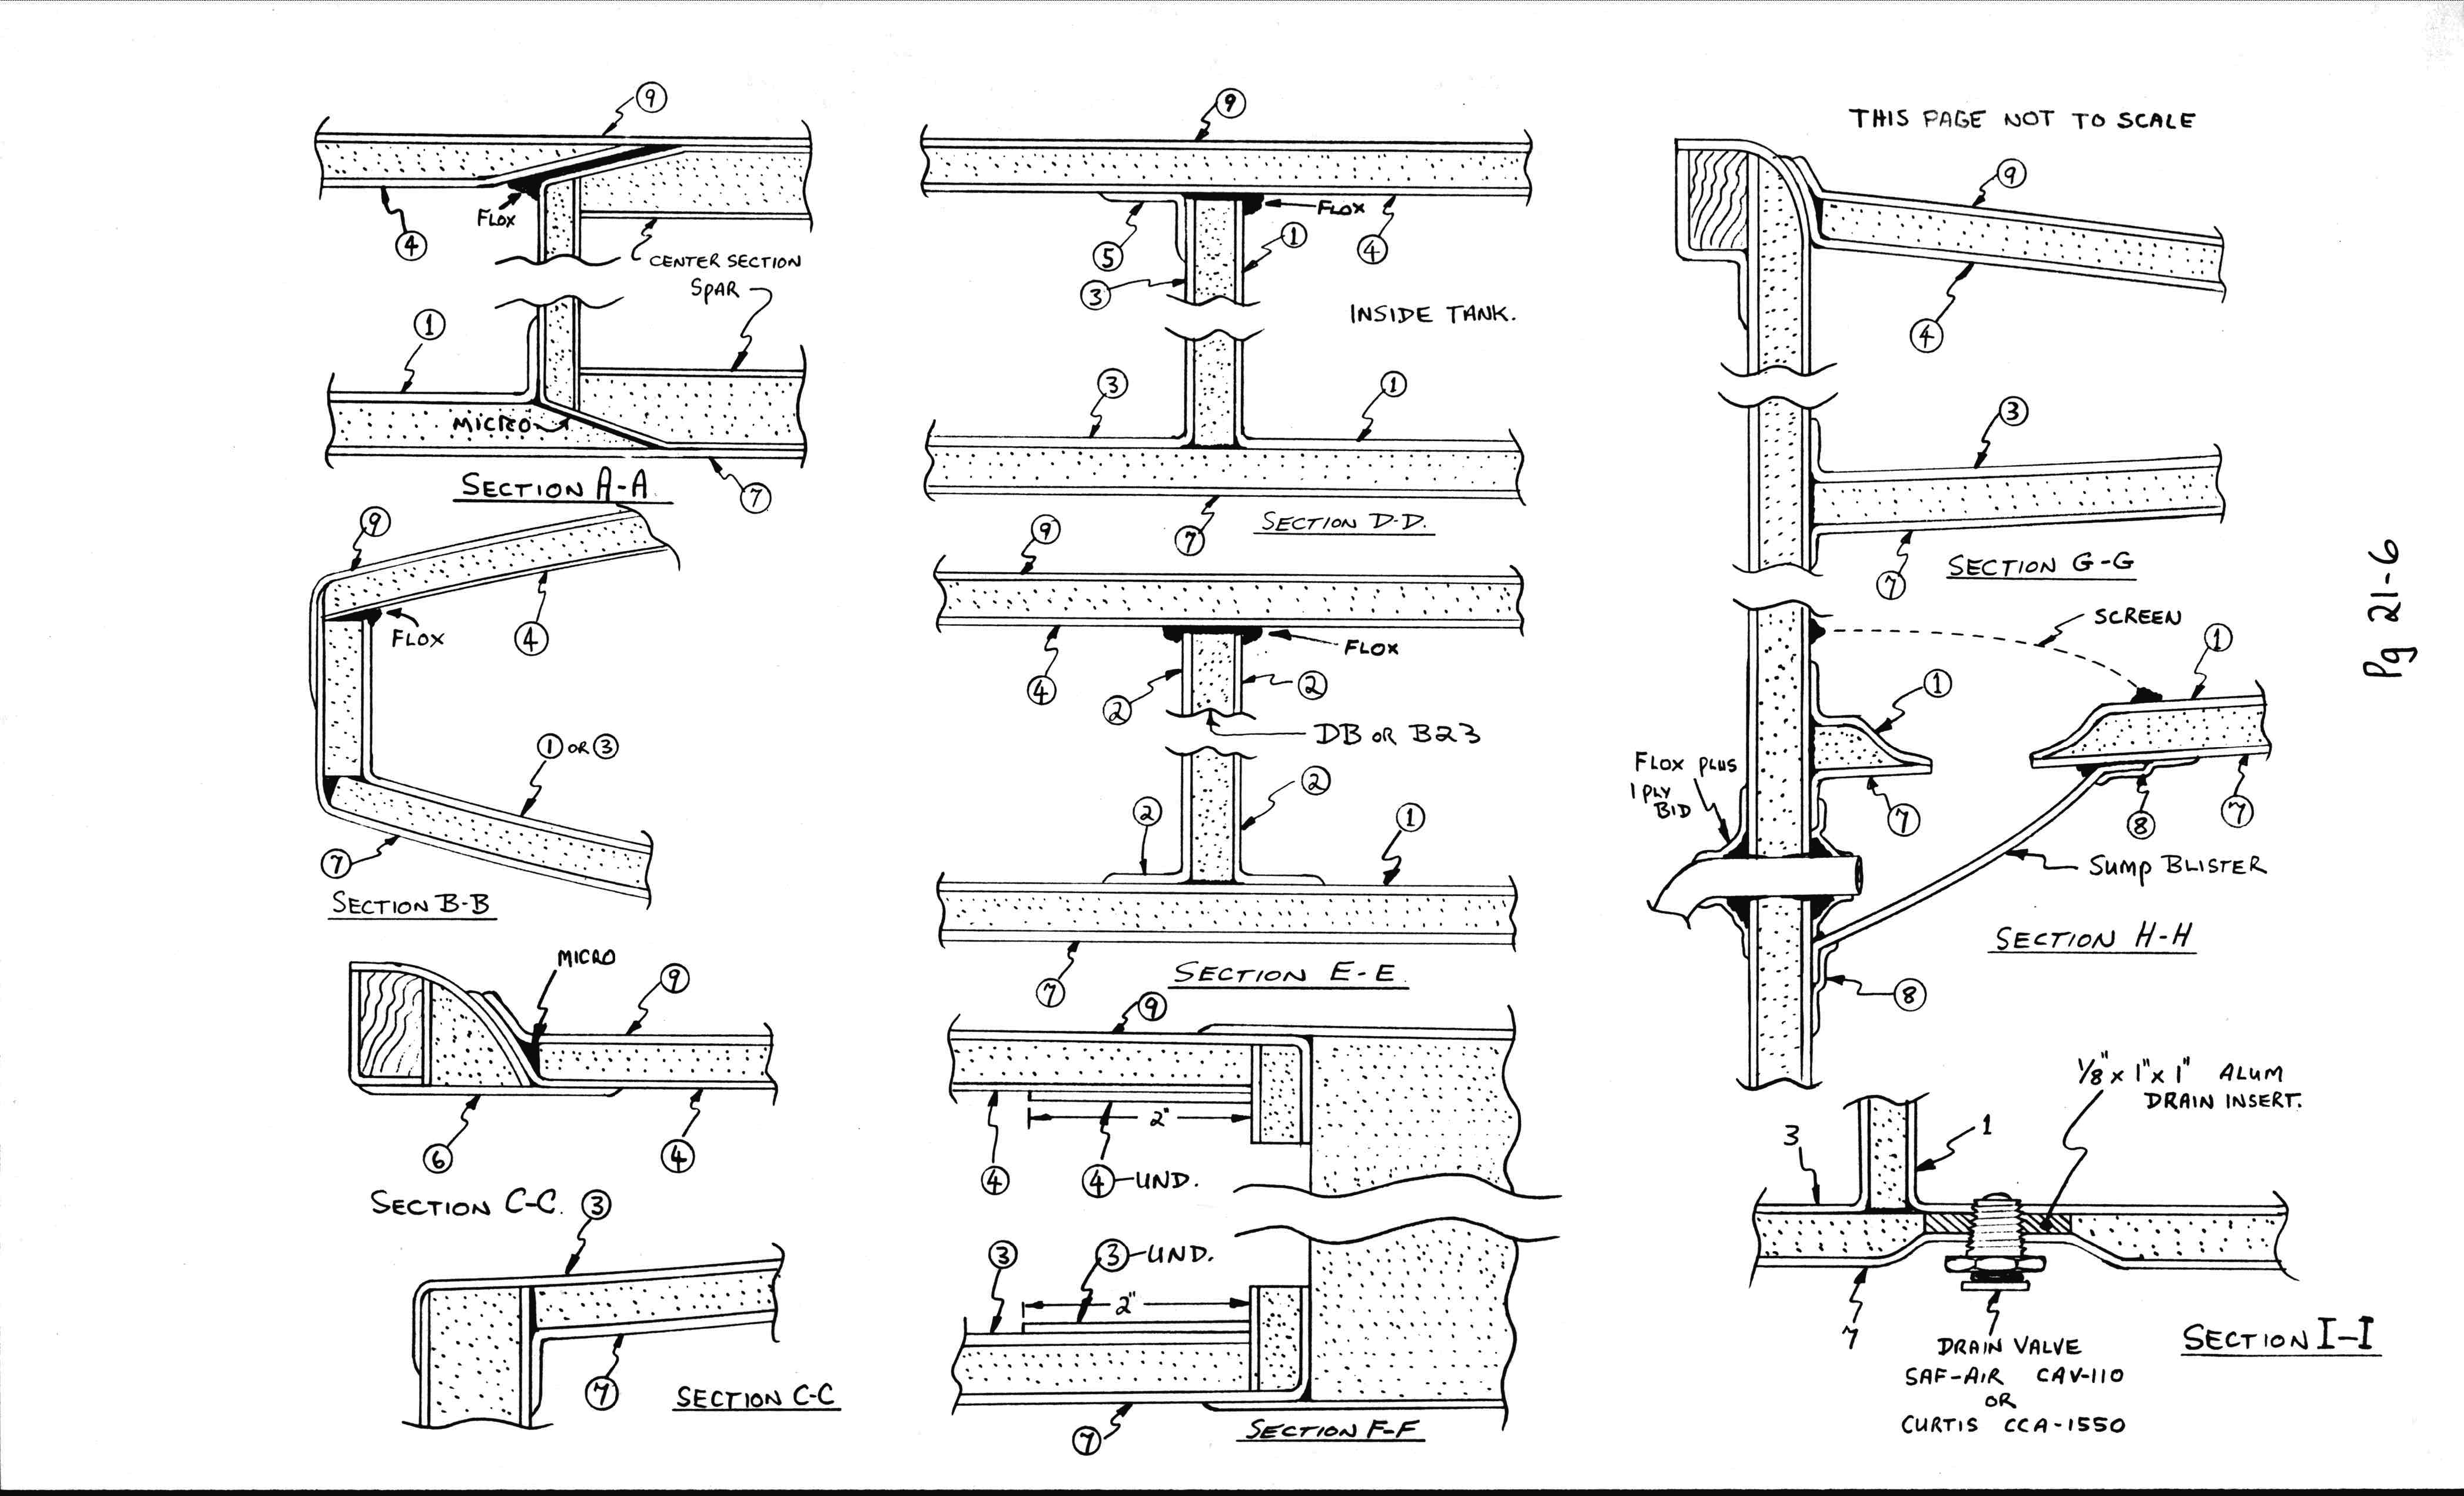 9
FLOX
4
CENTER SECTION
SPAR
1
MICRO
7
SECTION A-A
9
FLOX
4
1 OR 3
7
SECTION B-B
MICRO
9
6
4
SECTION C-C.
3
7
SECTION C-C
9
FLOX
5
1
4
3
INSIDE TANK.
3
1
7
SECTION D-D.
9
4
FLOX
2
2
DB OR B23
2
2
1
7
SECTION E-E.
9
2"
4
4-UND.
3
3-UND.
2"
7
SECTION F-F
THIS PAGE NOT TO SCALE
9
4
3
7
SECTION G-G
SCREEN
1
1
FLOX PLUS
1 PLY
BID
7
8
7
SUMP BLISTER
SECTION H-H
8
1/8" x 1" x 1" ALUM
DRAIN INSERT.
3
1
7
DRAIN VALVE
SAF-AIR CAV-110
OR
CURTIS CCA-1550
SECTION I-I
Pg 21-6